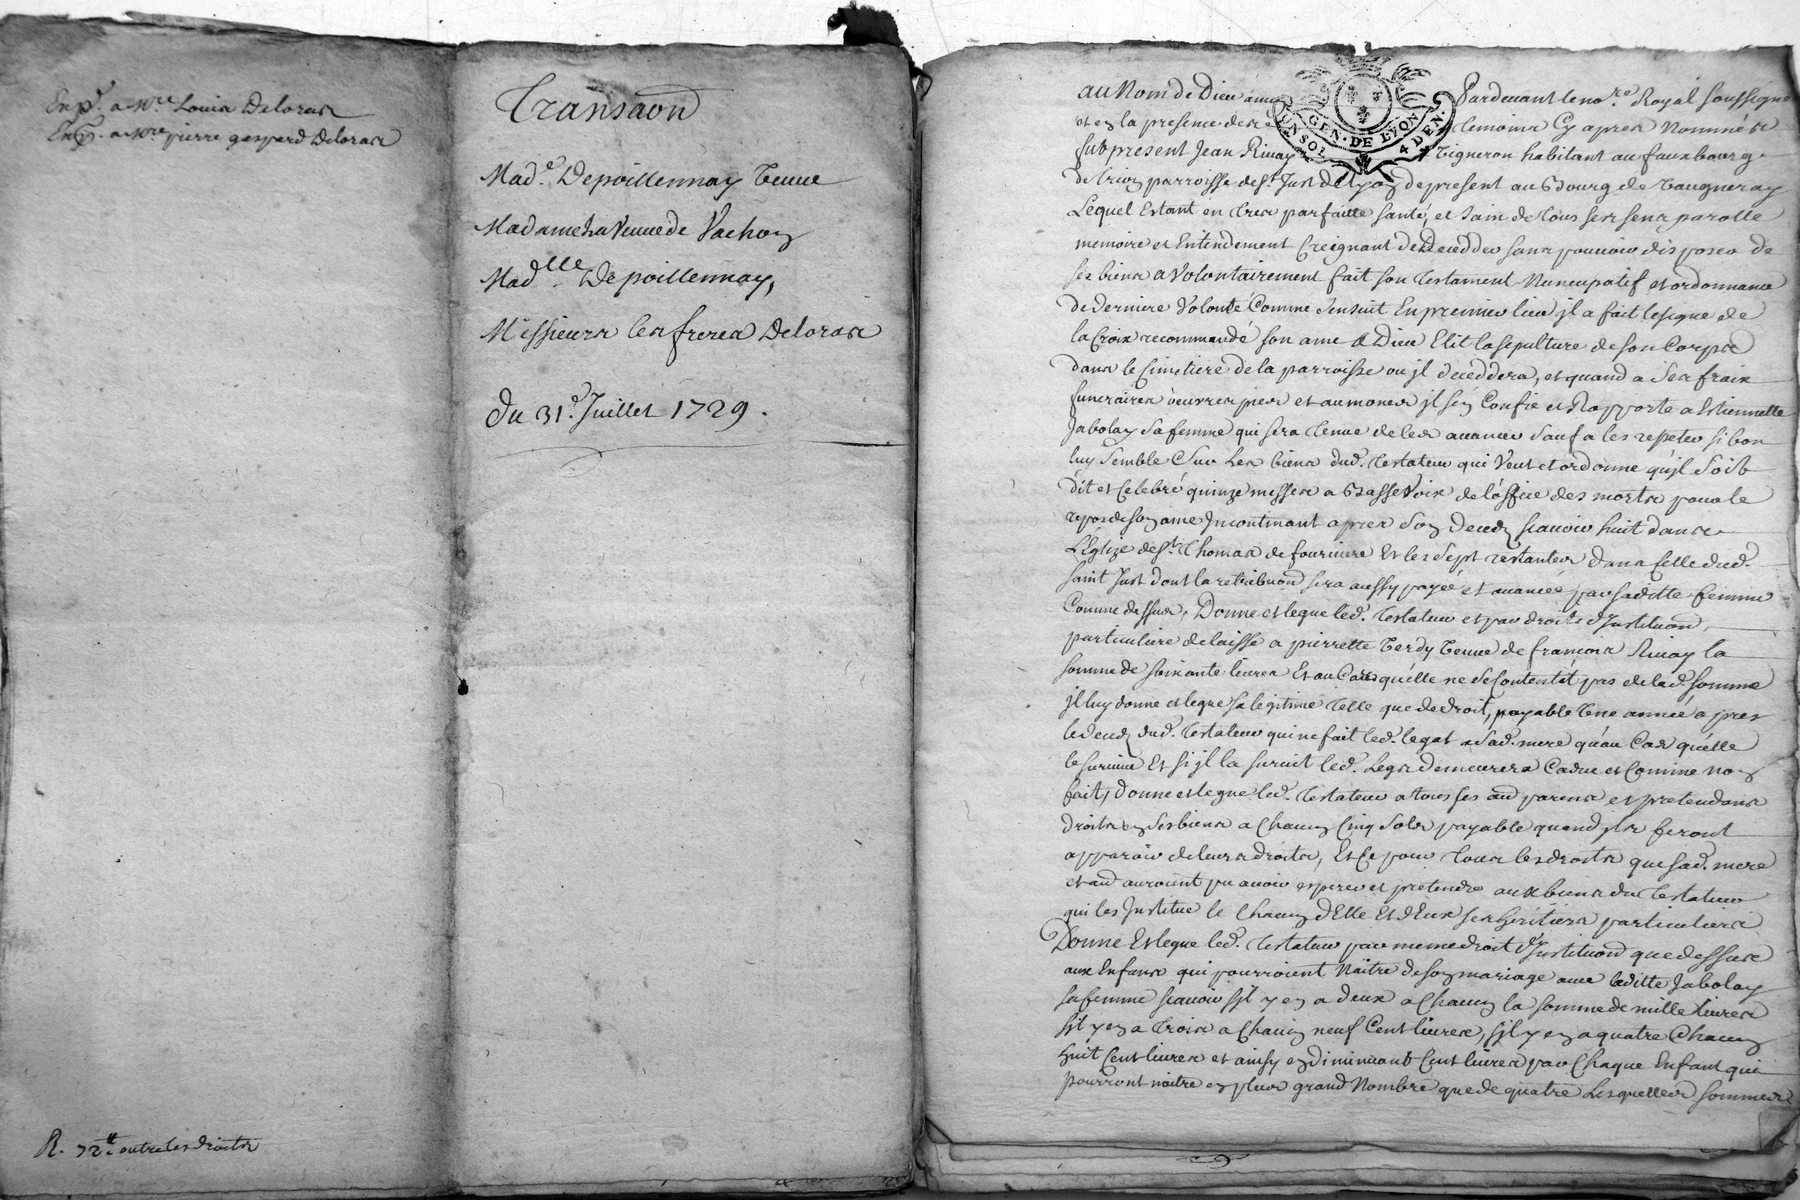 Exp.^d a M.^re Louis Deloras
Exp.^d a M.^re pierre gaspard Deloras
R. 72^tt outre les droits
Transaon
Mad.^e Depoillennay Veuve
Madame La Veuve de Vachon
Mad^lle Depoillennay,
Messieurs les freres Deloras
du 31.^e Juillet 1729.
GEN. DE LYON
UN SOL 4 DEN.
au Nom de Dieu amen Pardevant le no.^re Royal soussigné
et en la presence des temoins Cy apres Nommés
fut present Jean Rivay Vigneron habitant au fauxbourg
de trion parroisse de S.^t Just de Lyon de present au Bourg de Vaugneray
Lequel Estant en tres parfaitte santé, et sain de tous ses sens parolle
memoire et Entendement Creignant de Decedder sans pouvoir disposer de
ses biens a Volontairement fait son testament Nuncupatif et ordonnance
de derniere Volonté Comme s'ensuit En premier lieu jl a fait le signe de
la Croix recommandé son ame a Dieu Elit la sepulture de son Corps
dans le Cimetiere de la parroisse ou jl deceddera, et quand a ses fraix
funeraires oeuvres pies et aumones jl s'en Confie et Rapporte a Estiennette
Jabolay sa femme qui sera tenue de les avancer sauf a les repeter si bon
luy semble sur Les biens dud. testateur qui Veut et ordonne qu'jl soit
dit et Celebré quinze messes a Basse Voix de l'office des morts pour le
repos de son ame Incontinant apres son deces scavoir huit dans
L'Eglize de S.^t Thomas de fourviere Et les sept restantes dans celle dud.
saint Just dont la retribuon sera aussy payée et avancée par saditte femme
Comme dessus, Donne et legue led. testateur et par droit d'Instituon
particuliere delaisse a pierrette Verdy Veuve de francois Rivay la
somme de soixante livres Et au Cas qu'elle ne se Contentât pas de lad. somme
jl luy donne et legue sa legitime telle que de droit, payable Une année apres
le deces dud. testateur qui ne fait led. legat a sad. mere qu'au Cas qu'elle
le survive Et si jl la survit led. Legs demeurera Caduc et Comme non
fait, donne et legue led. testateur a tous ses au.^s parens et pretendans
droits en ses biens a Chacun Cinq sols payable quand jls feront
apparoir de leurs droits, Et Ce pour tous les droits que sad. mere
et au.^s auroient pu avoir esperer et pretendre aux biens du testateur
qui les Institue le Chacun d'Elle Et d'Eux ses heritiers particuliers
Donne Et legue led. testateur par meme droit d'Instituon que dessus
aux Enfans qui pourroient Naître de son mariage avec laditte Jabolay
sa femme scavoir s'jl y en a deux a Chacun la somme de mille livres
s'jl y en a trois a Chacun neuf Cent livres, s'jl y en a quatre Chacun
huit Cent livres et ainsy en diminuant Cent livres par Chaque Enfant qui
pourront naitre en plus grand Nombre que de quatre Lesquelles sommes